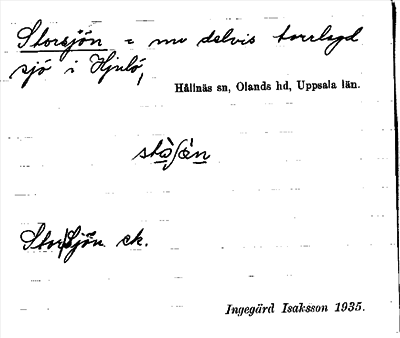 Storsjön = nu delvis torrlagd
sjö i Hjulö,
Hållnäs sn, Olands hd, Uppsala län.
Stor/Sjön ek.
Ingegärd Isaksson 1935.